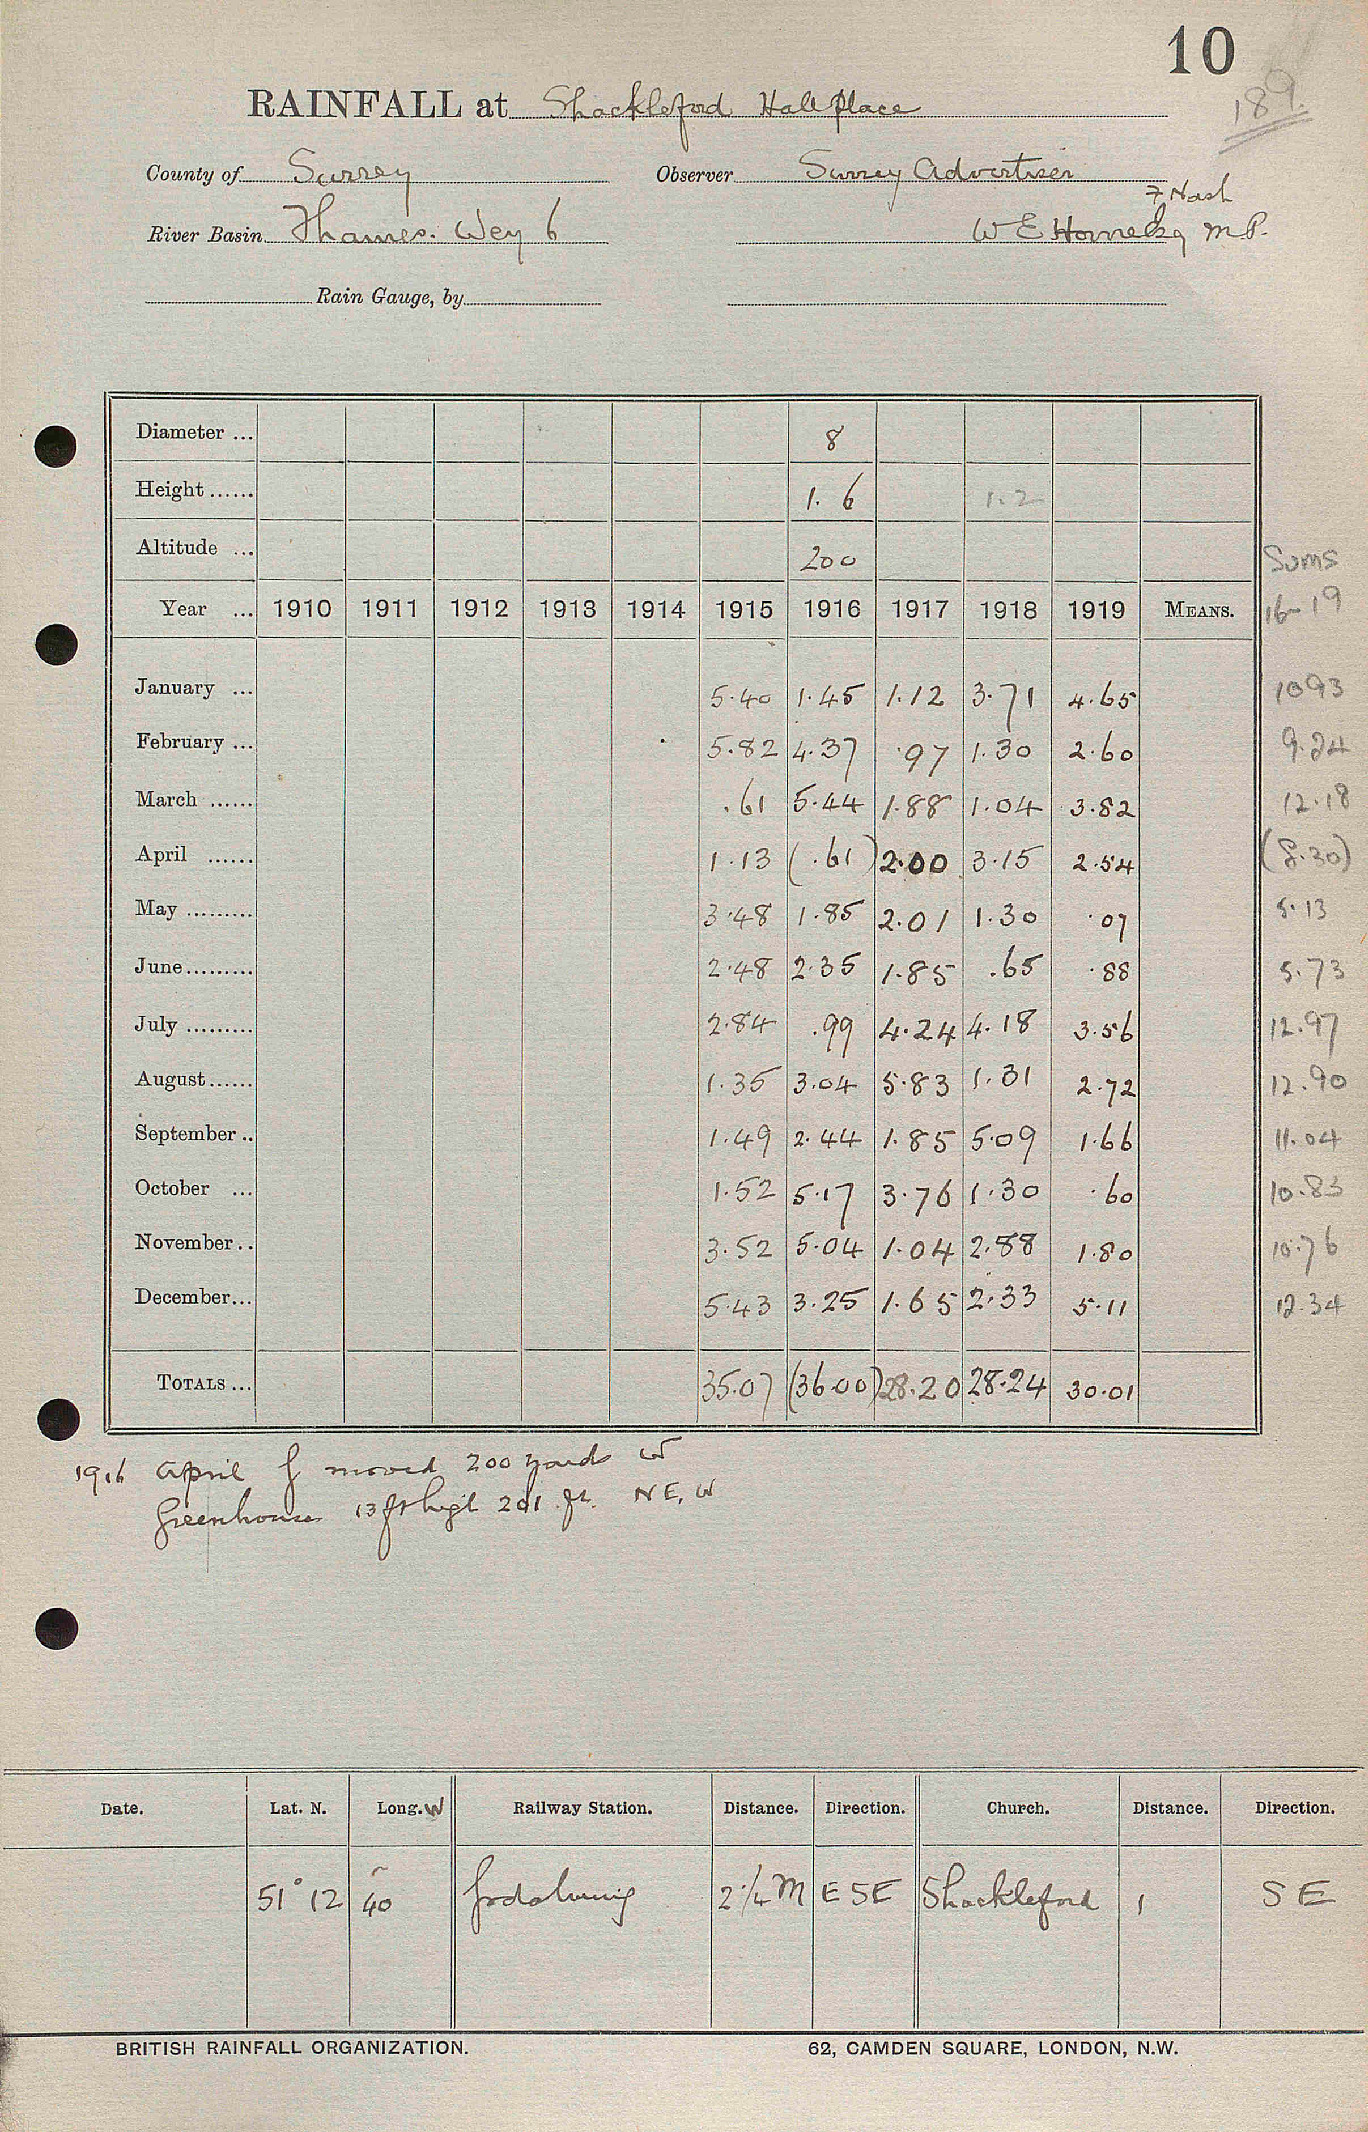 10
189.
RAINFALL at Shackleford Hall place
County of Surrey Observer Surrey Advertiser
F Nash
River Basin Thames. Wey 6 W E Horne Esq M.P.
Rain Gauge, by
Diameter ... 8
Height ...... 1. 6 1.2
Altitude ... 200 Sums
Year ... 1910 1911 1912 1913 1914 1915 1916 1917 1918 1919 MEANS. 16-19
January ... 5.40 1.45 1.12 3.71 4.65 1093
February ... 5.82 4.37 .97 1.30 2.60 9.24
March ...... .61 5.44 1.88 1.04 3.82 12.18
April ...... 1.13 (.61) 2.00 3.15 2.54 (8.30)
May ......... 3.48 1.85 2.01 1.30 .07 5.13
June ......... 2.48 2.35 1.85 .65 .88 5.73
July ......... 2.84 .99 4.24 4.18 3.56 12.97
August ...... 1.35 3.04 5.83 1.31 2.72 12.90
September .. 1.49 2.44 1.85 5.09 1.66 11.04
October ... 1.52 5.17 3.76 1.30 .60 10.83
November .. 3.52 5.04 1.04 2.88 1.80 10.76
December ... 5.43 3.25 1.65 2.33 5.11 12.34
TOTALS ... 35.07 (36.00) 28.20 28.24 30.01
1916 April G moved 200 yards W
Greenhouse 13 ft high 201 ft. NE, W
Date. Lat. N. Long. W Railway Station. Distance. Direction. Church. Distance. Direction.
51° 12 40 Godalming 2 1/4 M E SE Shackleford 1 S E
BRITISH RAINFALL ORGANIZATION. 62, CAMDEN SQUARE, LONDON, N.W.